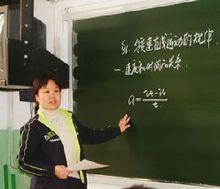 §2. 匀变速直线运动的规律
一. 速度和时间的关系
a = (v_t - v_0) / t